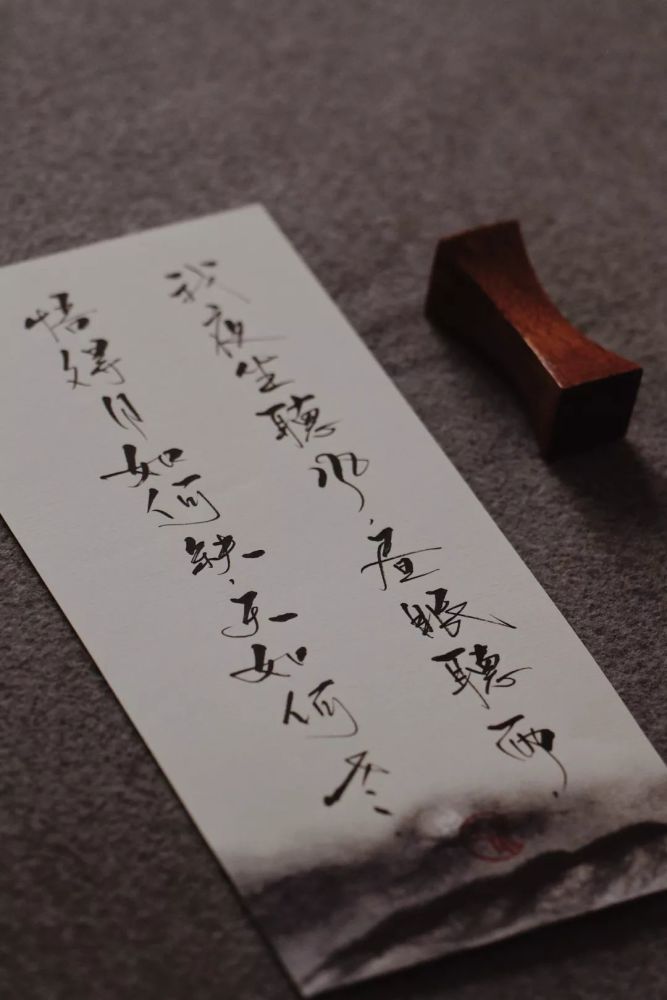 我夜坐聽風，昼眠聽雨，
悟得月如何缺，天如何老